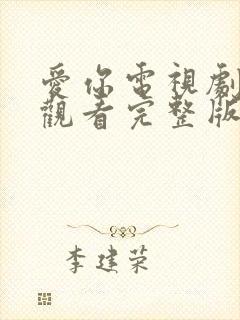 愛你電視劇
觀看完整版
李建荣